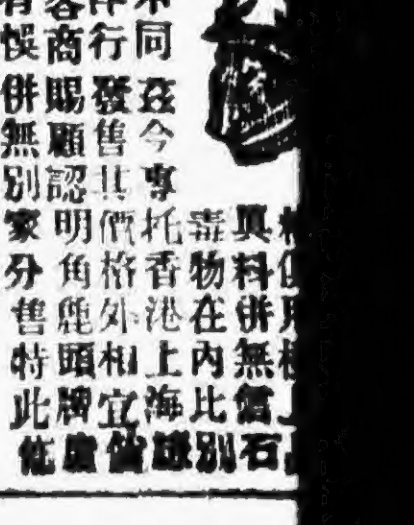 真料併無石
毒物在內比別
不同茲今專托香港上海
行發售其價格外相宜倘
客商賜顧認明角鹿頭牌庶
有悞併無別家分售特此佈